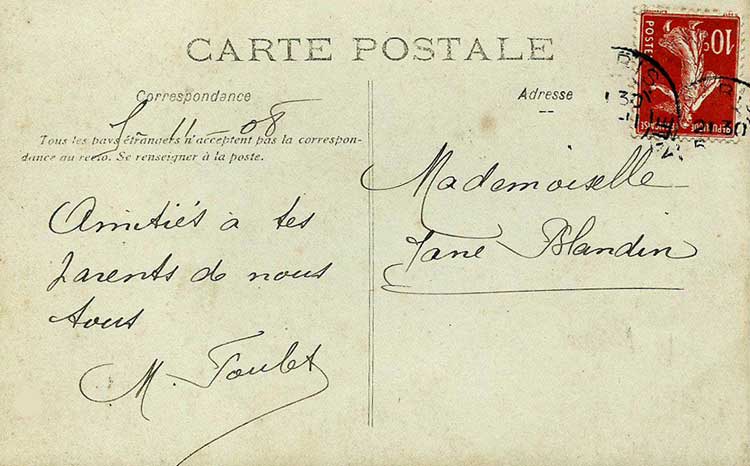 CARTE POSTALE
Correspondance
11 - 08
Tous les pays étrangers n'acceptent pas la correspon-
dance au recto. Se renseigner à la poste.
Amitiés à tes
parents de nous
tous
M. Foulet
Adresse
Mademoiselle
Jane Blandin
10c
POSTES